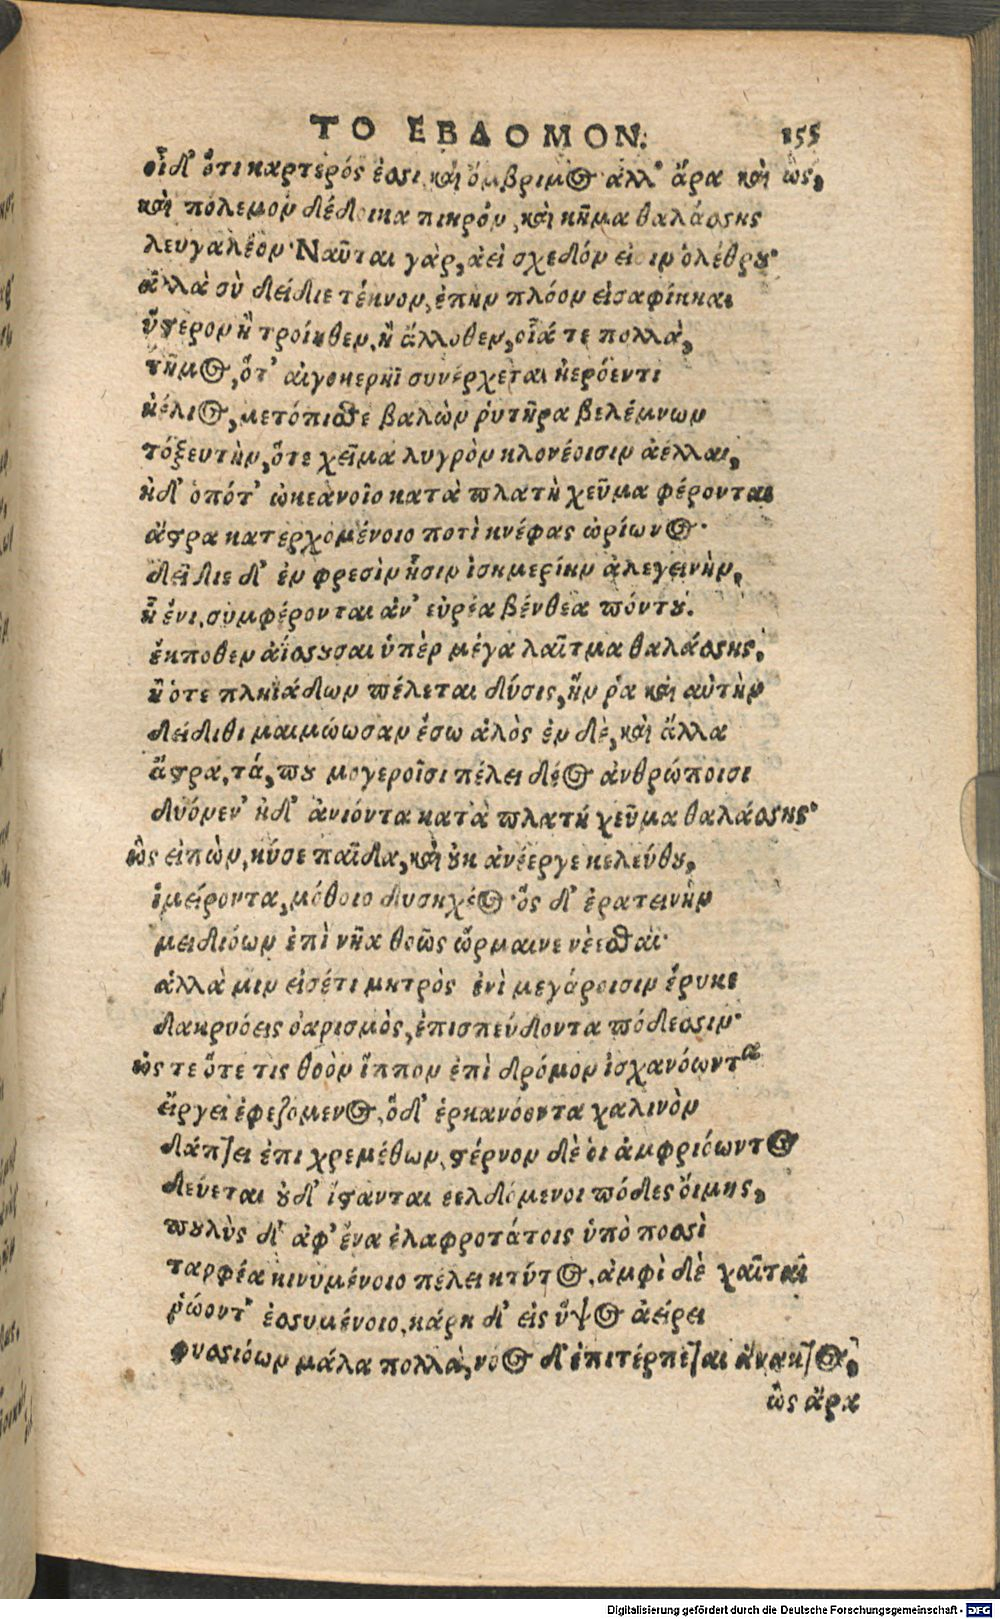 ΤΟ ΕΒΔΟΜΟΝ. 155
οἶδ' ὅτι καρτερός ἐσσι καὶ ὄμβριμος ἀλλ' ἄρα καὶ ὣς,
καὶ πόλεμον δέδοικα πικρόν, καὶ κῦμα θαλάσσης
λευγαλέον. Ναῦται γὰρ, ἀεὶ σχεδόν εἰσιν ὀλέθρου.
ἀλλὰ σὺ δείδιε τέκνον, ἐπὴν πλόον εἰσαφίκηαι
ὕστερον ἢ τροίηθεν, ἢ ἄλλοθεν, οἷά τε πολλὰ,
τῆμος, ὅτ' αἰγοκερῆϊ συνέρχεται ἠερόεντι
ἠέλιος, μετόπισθε βαλὼν ῥυτῆρα βελέμνων
τόξευτὴν, ὅτε χεῖμα λυγρὸν κλονέοισιν ἀέλλαι,
ἠδ' ὁπότ' ὠκεανοῖο κατὰ πλατὺ χεῦμα φέρονται
ἄστρα κατερχομένοιο ποτὶ κνέφας ὠρίωνος.
δείδιε δ' ἐν φρεσὶν ᾗσιν ἰσημερίην ἀλεγεινὴν,
ᾗ ἔνι, συμφέρονται ἀν' εὐρέα βένθεα πόντου.
ἔκποθεν ἀΐσσουσαι ὑπὲρ μέγα λαῖτμα θαλάσσης,
ἢ ὅτε πληϊάδων πέλεται δύσις, ἥν ῥα καὶ αὐτὴν
δείδιθι μαιμώωσαν ἔσω ἁλὸς ἐν δὲ, καὶ ἄλλα
ἄστρα, τά, που μογεροῖσι πέλει δέος ἀνθρώποισι
δυόμεν' ἠδ' ἀνιόντα κατὰ πλατὺ χεῦμα θαλάσσης.
ὣς εἰπὼν, κύσε παῖδα, καὶ οὐκ ἀνέεργε κελεύθου,
ἱμείροντα, μόθοιο δυσηχέος. ὃς δ' ἐρατεινὴν
μειδιόων ἐπὶ νῆα θοῶς ὥρμαινε νέεσθαι.
ἀλλὰ μιν εἰσέτι μητρὸς ἐνὶ μεγάροισιν ἔρυκε
δακρυόεις ὀαρισμὸς, ἐπισπεύδοντα πόδεσσιν.
ὡς τε ὅτε τις θοὸν ἵππον ἐπὶ δρόμον ἰσχανόωντα
εἴργει ἐφεζόμενος, ὅδ' ἐρκανόοντα χαλινὸν
δάπτει ἐπιχρεμέθων, στέρνον δέ οἱ ἀμφριόωντος
δεύεται οὐδ' ἵστανται ἐελδόμενοι πόδες οἴμης,
πουλὺς δ' ἀφ' ἕνα ἐλαφροτάτοις ὑπὸ ποσσὶ
ταρφέα κινυμένοιο πέλει κτύτος, ἀμφὶ δὲ χαῖται
ῥώοντ' ἐσσυμένοιο, κάρη δ' εἰς ὕψος ἀείρει
φυσιόων μάλα πολλὰ, νόος δ' ἐπιτέρπεται ἄνακτος,
ὣς ἄρα
Digitalisierung gefördert durch die Deutsche Forschungsgemeinschaft - DFG